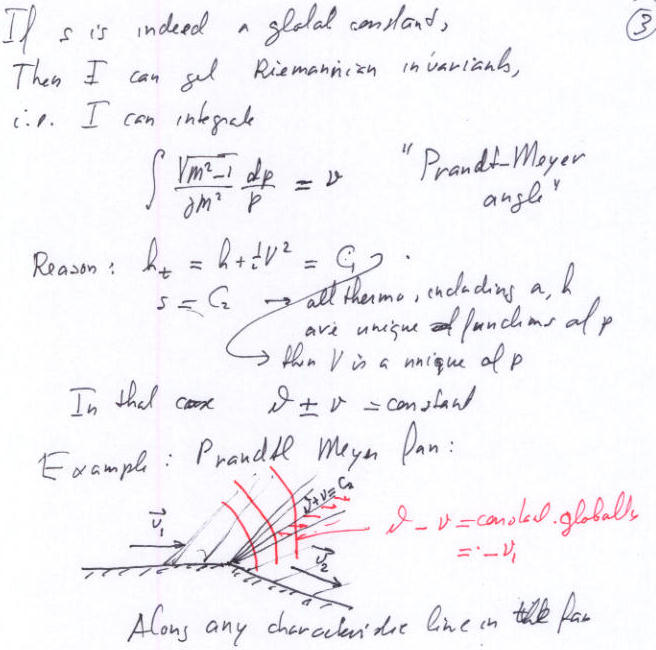 If s is indeed a global constant, ③
Then I can get Riemannian invariants,
i.e. I can integrate
∫ √(m²-1)/(γm²) dp/p = ν "Prandt-Meyer angle"
Reason: h_t = h + ½V² = C₁
s = C₂ → all thermo, including a, h
are unique functions of p
→ then V is a unique of p
In that case ϑ ± ν = constant
Example: Prandtl Meyer fan:
ϑ+ν = C₂
V⃗₁
V⃗₂
ϑ - ν = constant globally
= -ν₁
Along any characteristic line in the fan